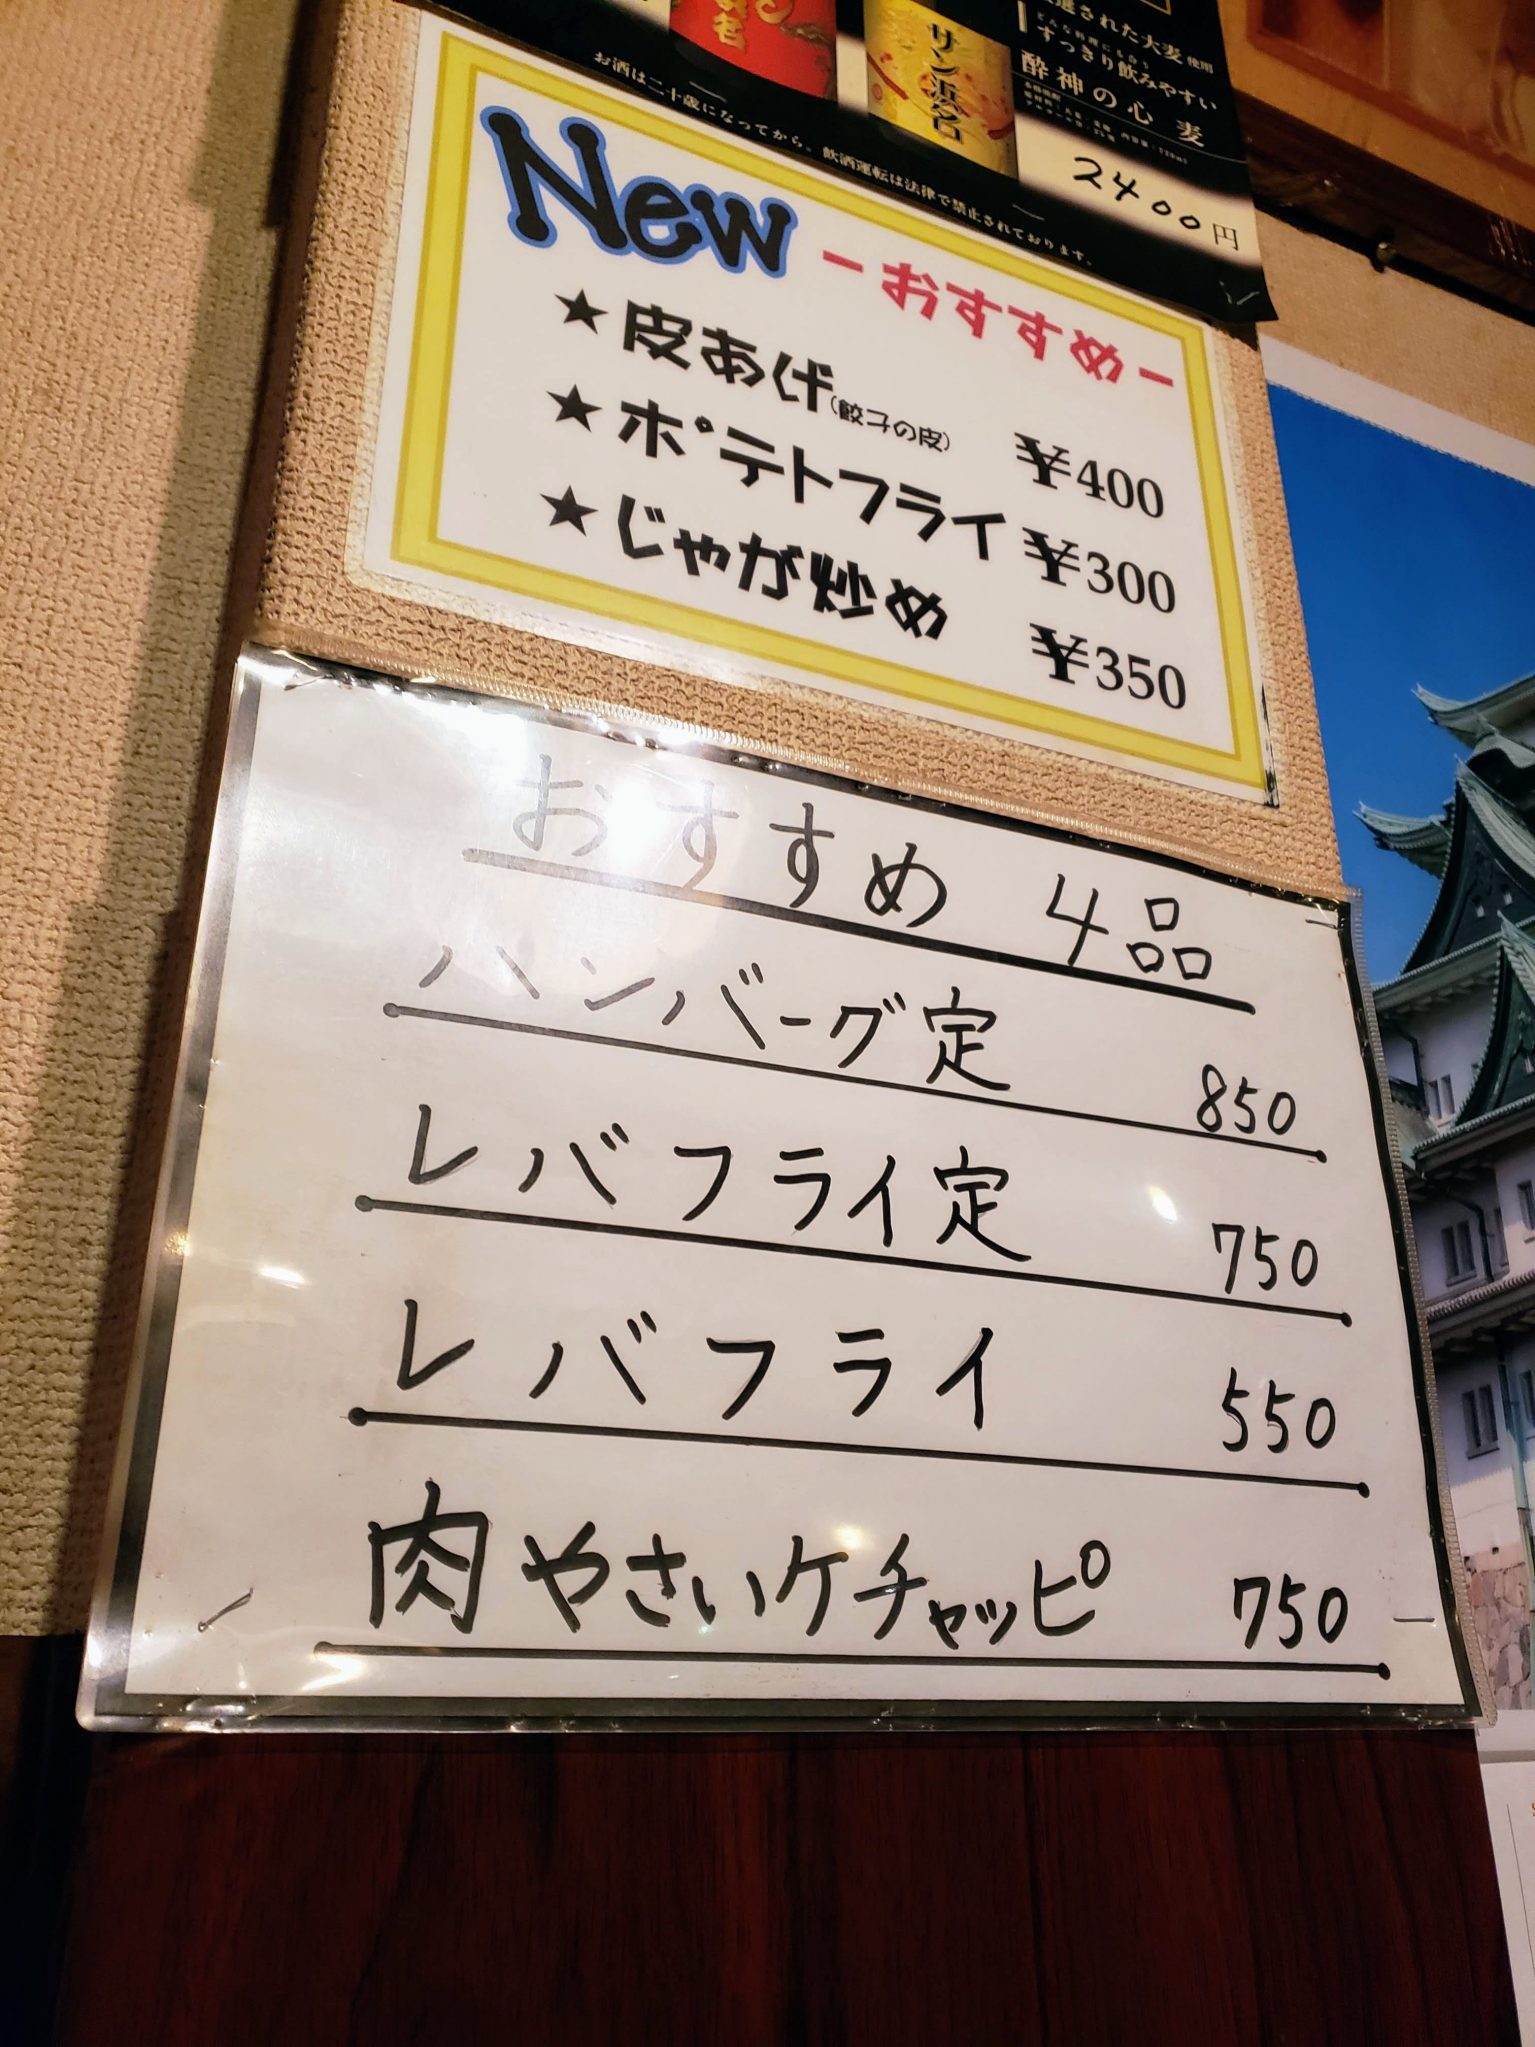 サンポグロ
選された大麦使用
どんな料理にも合う
すっきり飲みやすい
酔神の心 麦
2400円
お酒は二十歳になってから。飲酒運転は法律で禁止されております。
New -おすすめ-
★皮あげ(餃子の皮) ¥400
★ポテトフライ ¥300
★じゃが炒め ¥350
おすすめ 4品
ハンバーグ定 850
レバフライ定 750
レバフライ 550
肉やさいケチャッピ 750